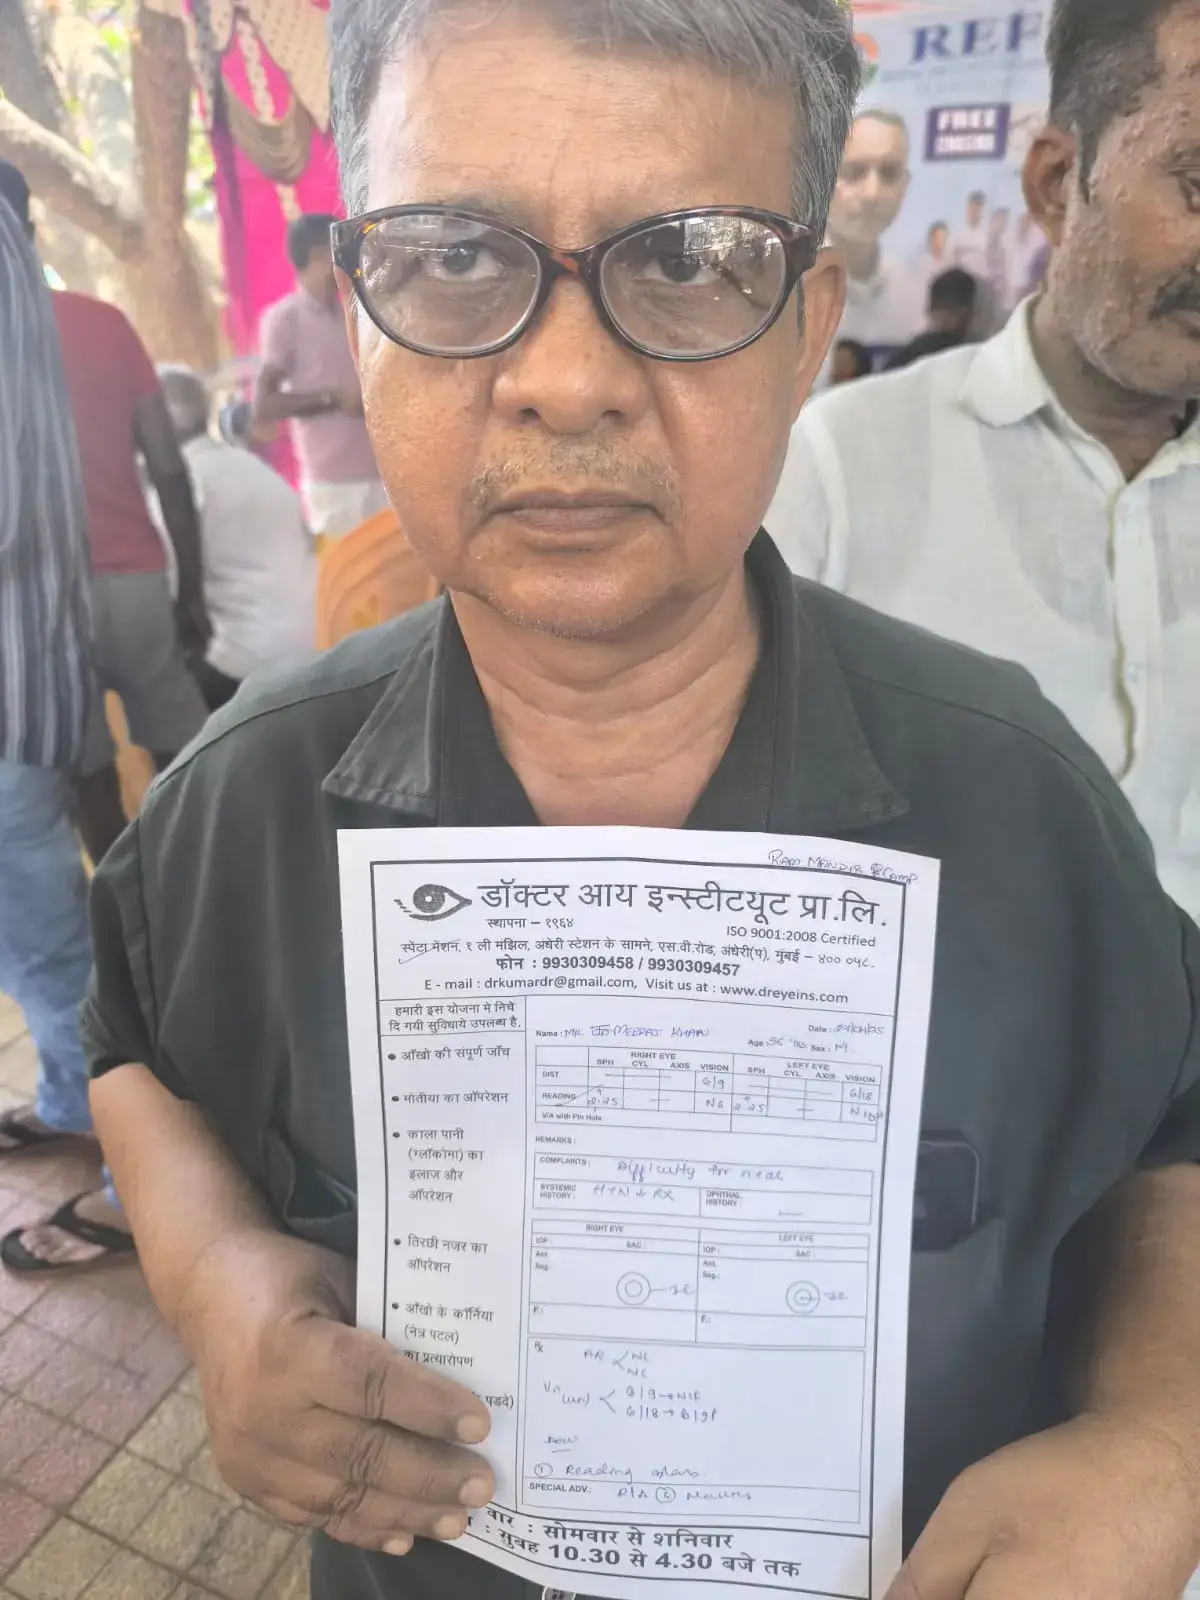 REF
FREE
RAM MANDIR CAMP
डॉक्टर आय इन्स्टीटयूट प्रा.लि.
स्थापना – १९६४
ISO 9001:2008 Certified
स्पेंटा मेंशन, १ ली मंझिल, अंधेरी स्टेशन के सामने, एस.वी.रोड, अंधेरी(प), मुंबई – ४०० ०५८.
फोन : 9930309458 / 9930309457
E - mail : drkumardr@gmail.com, Visit us at : www.dreyeins.com
हमारी इस योजना मे निचे
दि गयी सुविधाये उपलब्ध है.
• आँखो की संपूर्ण जाँच
• मोतीया का ऑपरेशन
• काला पानी
(ग्लॉकोमा) का
इलाज और
ऑपरेशन
• तिरछी नजर का
ऑपरेशन
• आँखो के कॉर्निया
(नेत्र पटल)
का प्रत्यारोपण
पडदे)
Name : MR. MEERAJ KHAN
Date :
Age : 56 Sex : M.
RIGHT EYE LEFT EYE
SPH CYL AXIS VISION SPH CYL AXIS VISION
DIST 6/9 6/18
READING 2.25 N6 2.25
V/A with Pin Hole
REMARKS :
COMPLAINTS : Difficulty for near
SYSTEMIC HISTORY : HTN RX OPHTHAL HISTORY : —
RIGHT EYE LEFT EYE
IOP : SAC : IOP : SAC :
Ant. Seg.: Ant. Seg.:
F.: F.:
Rx
AR < NC
NC
Vn (un) < 6/9 → NIF
6/18 → 6/9P
① Reading glass
SPECIAL ADV.:
वार : सोमवार से शनिवार
: सुबह 10.30 से 4.30 बजे तक